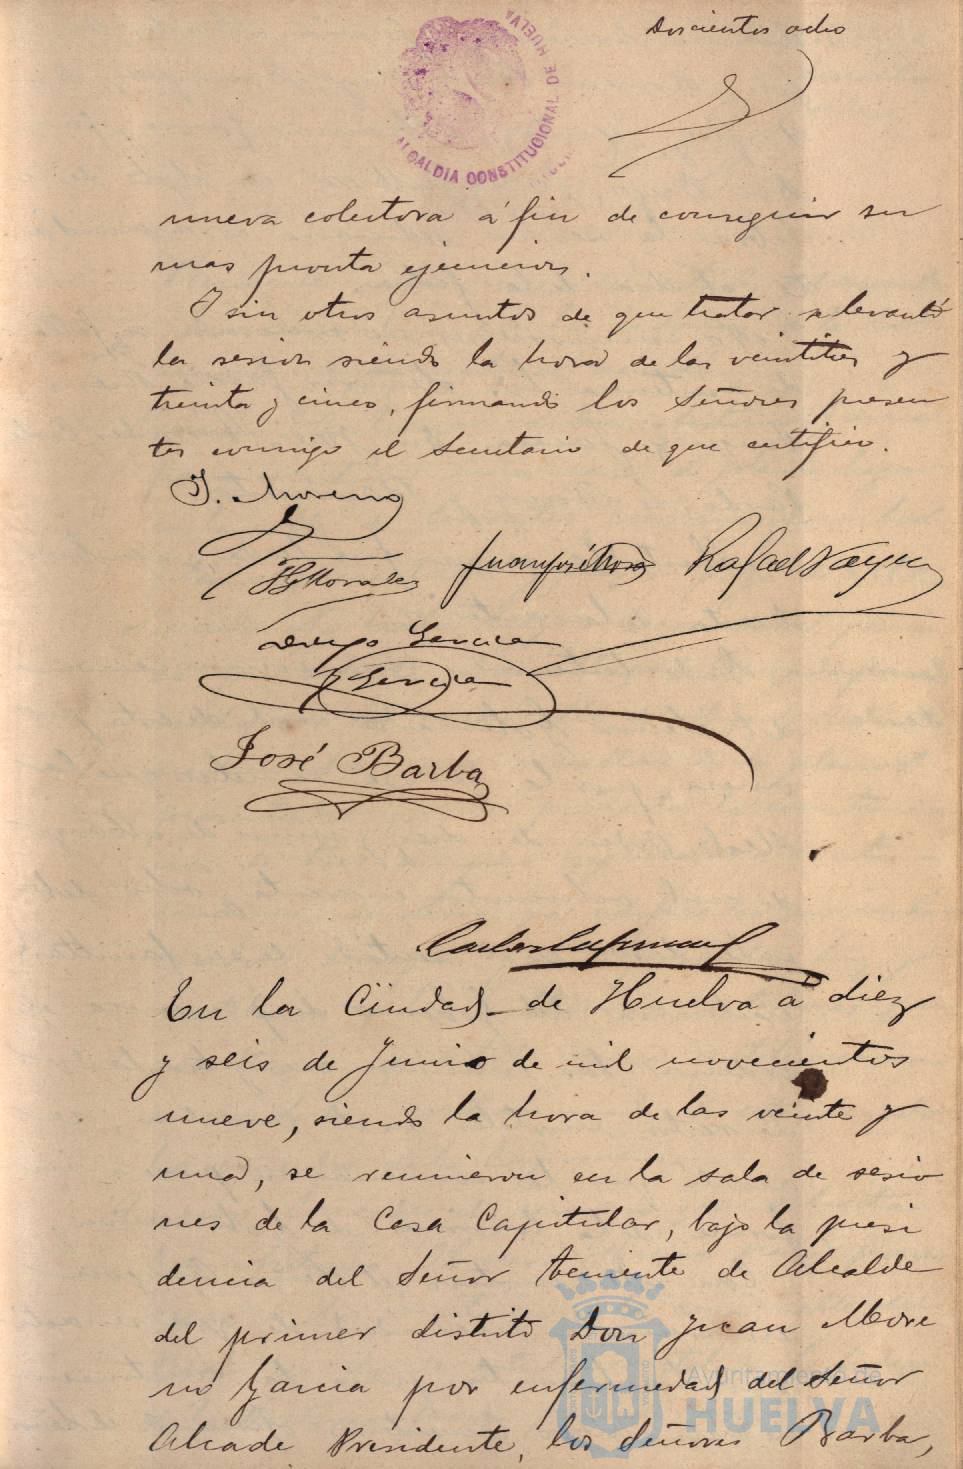 Doscientos ocho
ALCALDIA CONSTITUCIONAL DE HUELVA
nueva colectora á fin de conseguir su
mas pronta ejecucion.
Y sin otros asuntos de que tratar se levantó
la sesion siendo la hora de las veintitres y
treinta y cinco, firmando los Señores presen
tes conmigo el Secretario de que certifico.
J. Moreno
Morales
Juan José Rafael
Diego Garcia
Garcia
José Barba
En la Ciudad de Huelva á diez
y seis de Junio de mil novecientos
nueve, siendo la hora de las veinte y
una, se reunieron en la sala de sesio
nes de la Casa Capitular, bajo la presi
dencia del Señor teniente de Alcalde
del primer distrito Don Juan More
no Garcia por enfermedad del Señor
Alcade Presidente, los Señores Barba,
Ayuntamiento de
HUELVA